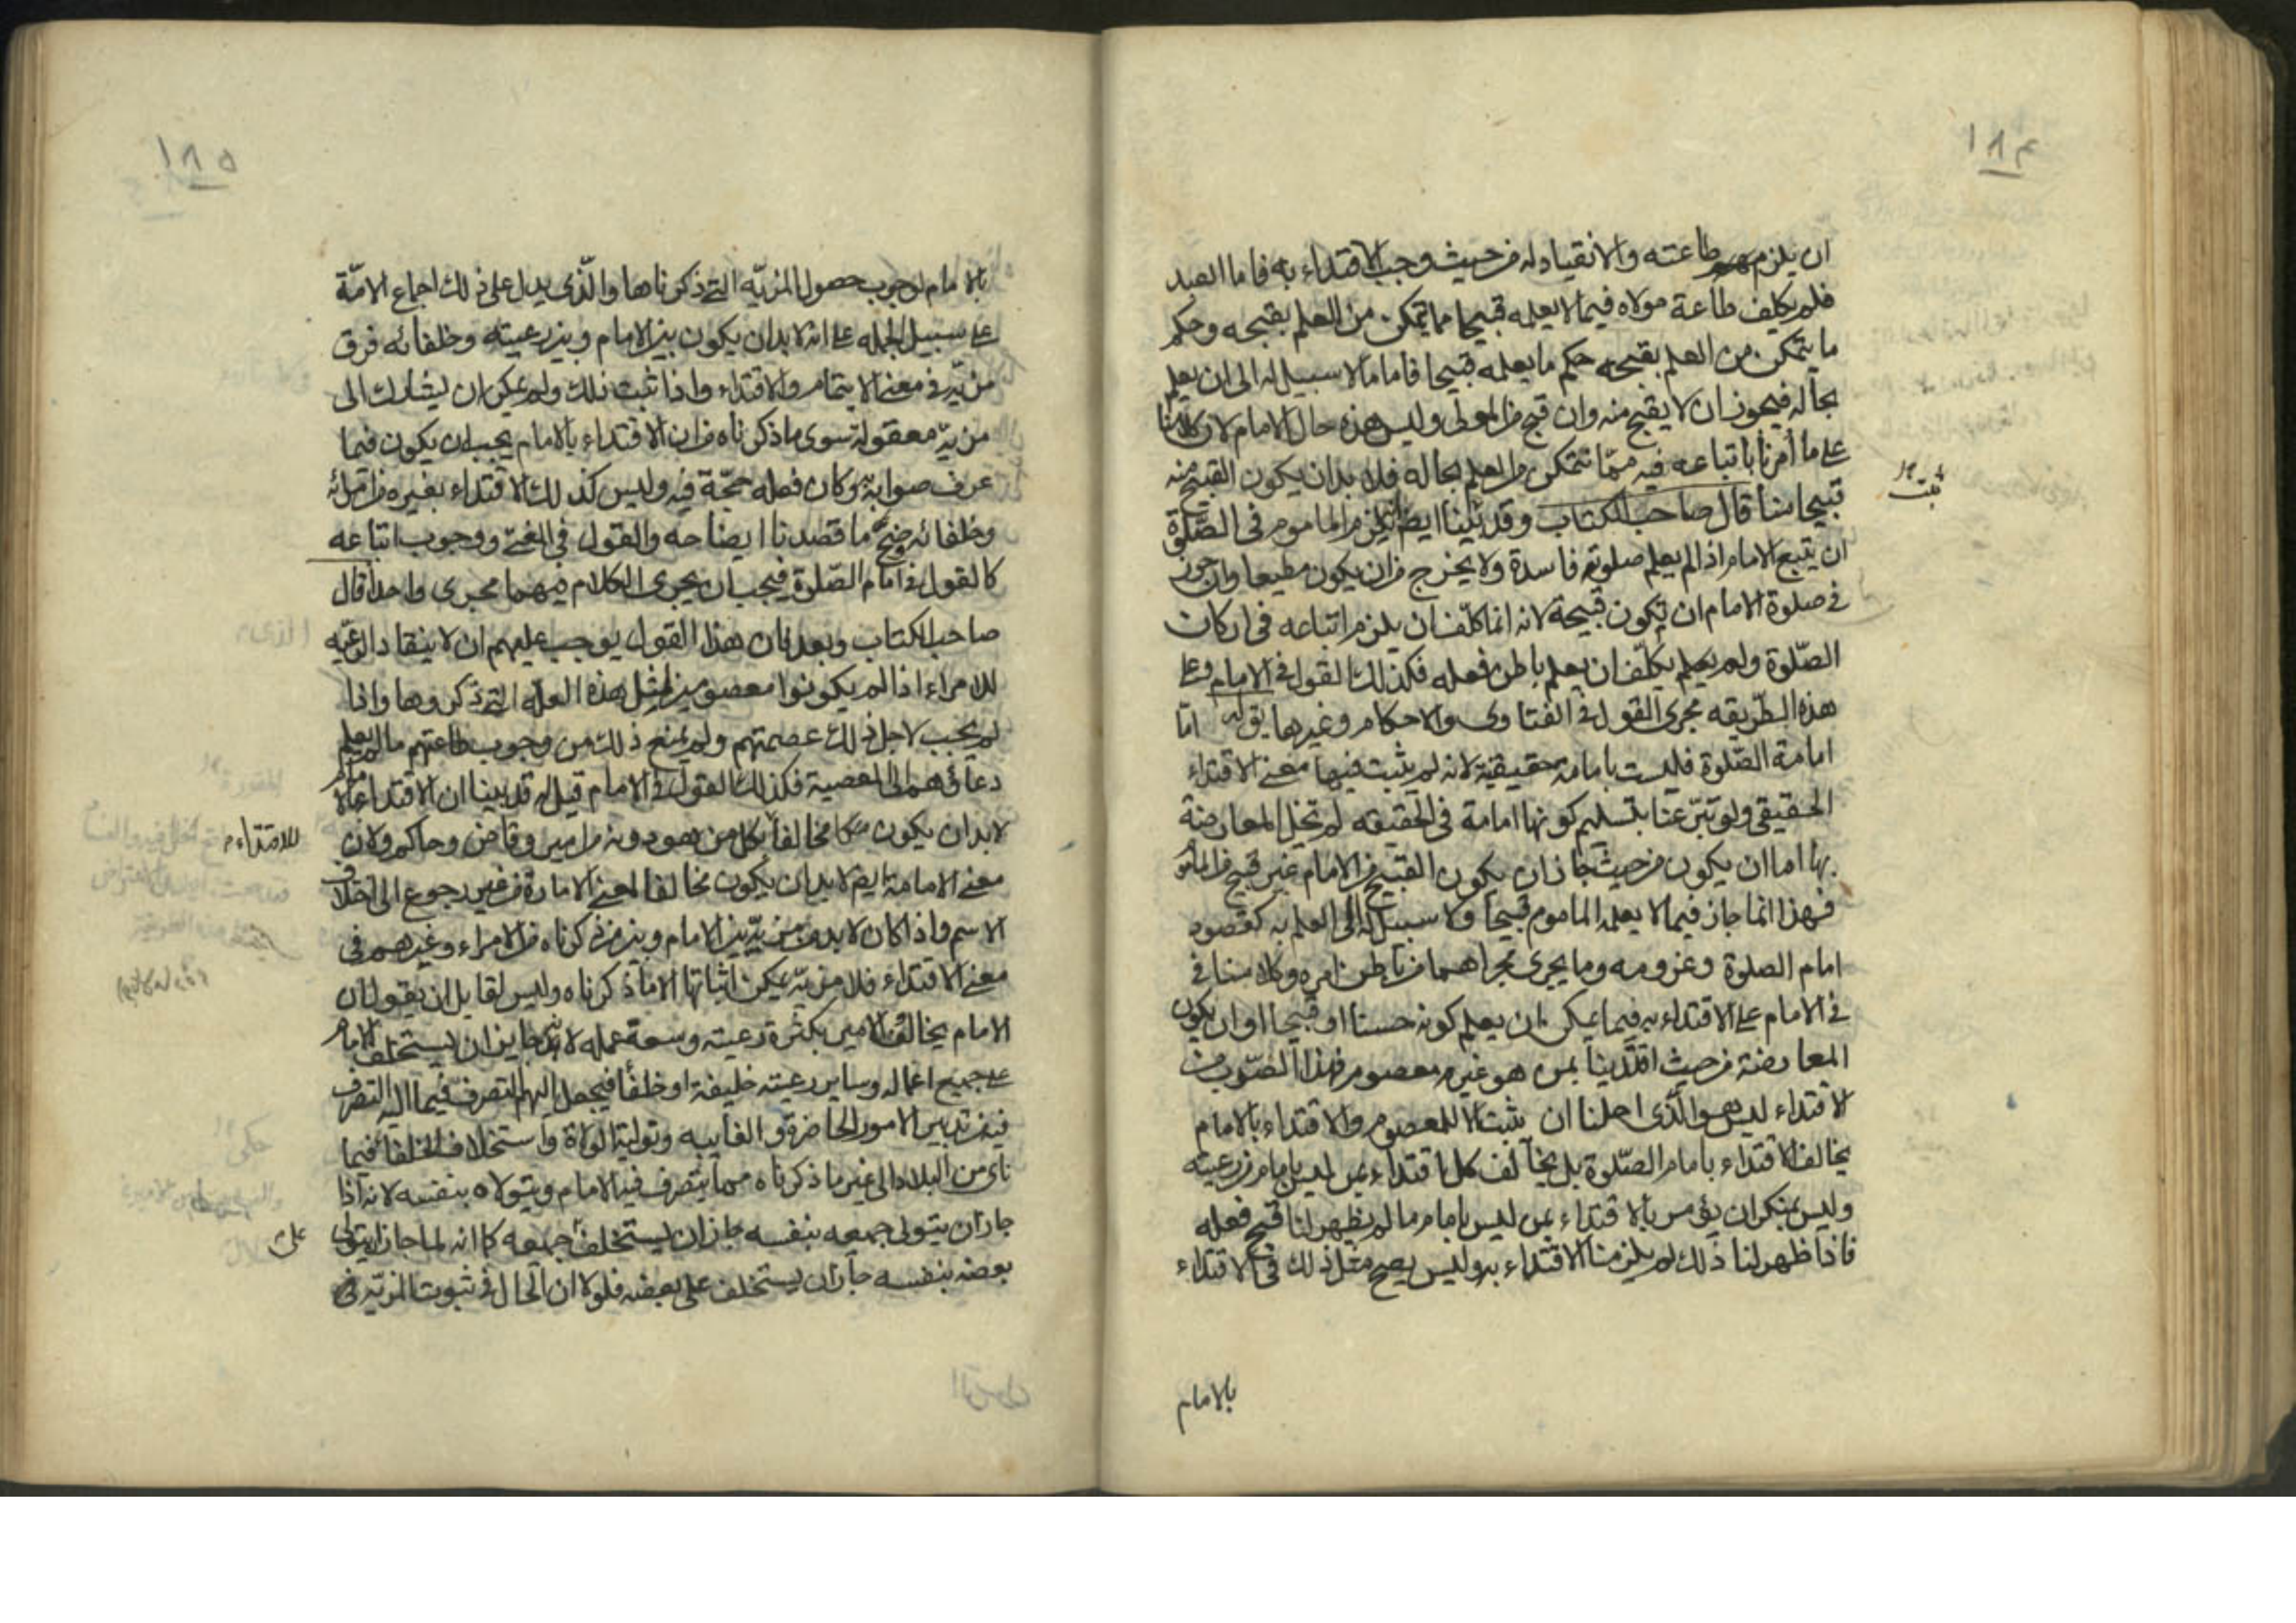 ١٨٤
ان يلزم طاعته والانقياد له من حيث وجب الاقتداء به فاما العبد
فلم يكلف طاعة مولاه فيما لا يعلمه قبيحا مما يتمكن من العلم بقبحه وحكم
ما يتمكن من العلم بقبحه حكم ما يعلمه قبيحا فاما ما لا سبيل له الى ان يعلم
بحاله فيجوز ان لا يقبح منه وان قبح من المولى وليس هذه حال الامام لان كلامنا
على ما أمرنا باتباعه فيه مما نتمكن من العلم بحاله فلا بد ان يكون القبيح منه
قبيحا منا قال صاحب الكتاب وقد ايضا يلزم الماموم فى الصلوة
ثبت
ان يتبع الامام اذا لم يعلم صلوته فاسدة ولا يخرج من ان يكون مطيعا وان جوز
فى صلوة الامام ان تكون قبيحة لانه انما كلف ان يلزم اتباعه فى اركان
الصلوة ولم يكلف ان يعلم باطن فعله فكذلك القول فى الامام وعلى
هذه الطريقه مجرى القول فى الفتاوى والاحكام وغيرها يق له اما
امامة الصلوة فليست بامامة حقيقية لانه لم يثبت فيها معنى الاقتداء
الحقيقى ولو تبرعنا بتسليم كونها امامة فى الحقيقه لم تخل المعارضة
بها اما ان يكون من حيث جاز ان يكون القبيح من الامام غير قبيح من الماموم
فهذا انما جاز فيما لا يعلمه الماموم قبيحا ولا سبيل له الى العلم به كقصود
امام الصلوة وعزومه وما يجرى مجراهما من باطن امره وكلامنا فى
فى الامام على الاقتداء به فيما يمكن ان يعلم كونه حسنا او قبيحا او ان يكون
المعارضة من حيث اقتدينا بمن هو غير معصوم فهذا الضرب من
الاقتداء ليس هو الذى احلنا ان يثبت الا للمعصوم والاقتداء بالامام
يخالف الاقتداء بامام الصلوة بل يخالف كل اقتداء بمن ليس بامام من رعيته
وليس بمنكر ان يؤمر بالاقتداء بمن ليس بامام ما لم يظهر لنا قبح فعله
فاذا ظهر لنا ذلك لم يلزمنا الاقتداء به وليس يصح مثل ذلك فى الاقتداء
بالامام
١٨٥
بالامام لوجوب حصول المزيّه التى ذكرناها والّذى يدل على ذلك اجماع الامّة
على سبيل الجمله على انه لا بد ان يكون بين الامام وبين رعيته وخلفائه فرق
مزيّة فى معنى الايتمام والاقتداء واذا ثبت ذلك ولم يمكن ان يشار الى
مزيّة معقولة سوى ما ذكرناه من ان الاقتداء بالامام يجب ان يكون فيما
عرف صوابه وكان فعله حجّة فيه وليس كذلك الاقتداء بغيره من امرائه
وخلفائه وضح ما قصدنا ايضاحه والقول فى ووجوب اتباعه
كالقول فى امام الصّلوة فيجب ان يجرى الكلام فيهما مجرى واحدا قال
صاحب الكتاب وبعد فان هذا القول يوجب عليهم ان لا ينقاد الرعيّه
للامراء اذا لم يكونوا معصومين لمثل هذه العلّه التى ذكروها واذا
لم يجب لاجل ذلك عصمتهم ولم يمنع ذلك من وجوب طاعتهم ما لم يعلم
دعاؤهم الى المعصية فكذلك القول فى الامام قيل له قد بينا ان الاقتداء بالامام
لا بد ان يكون مخالفا لكل من هو دونه من امير وقاض وحاكم ولان
للاقتداء م
معنى الامامة ايض لا بد ان يكون مخالفا لمعنى الامارة من غير رجوع الى اختلاف
الاسم واذا كان لا بد من مزيّة بين الامام وبين من ذكرناه من الامراء وغيرهم فى
معنى الاقتداء فلا مزيّة يمكن اثباتها الا ما ذكرناه وليس لقايل ان يقول ان
الامام يخالف الامير بكثرة رعيته وسعة عمله لانه جايز ان يستخلف الامام
على جميع اعماله وساير رعيته خليفة او خلفا فيجعل اليهم التصرف فيما اليه التصرف
فيه من تدبير الامور الحاضرة والغايبه وتولية الولاة واستخلاف الخلفا فيما
نأى من البلاد الى غير ما ذكرناه مما يتصرف فيه الامام ويتولاه بنفسه لانه اذا
جاز ان يتولى جميعه بنفسه جاز ان يستخلف جميعه كما انه لما جاز ان يتولى
على
بعضه بنفسه جاز ان يستخلف على بعضه فلولا ان الحال فى ثبوت المزيّة فى